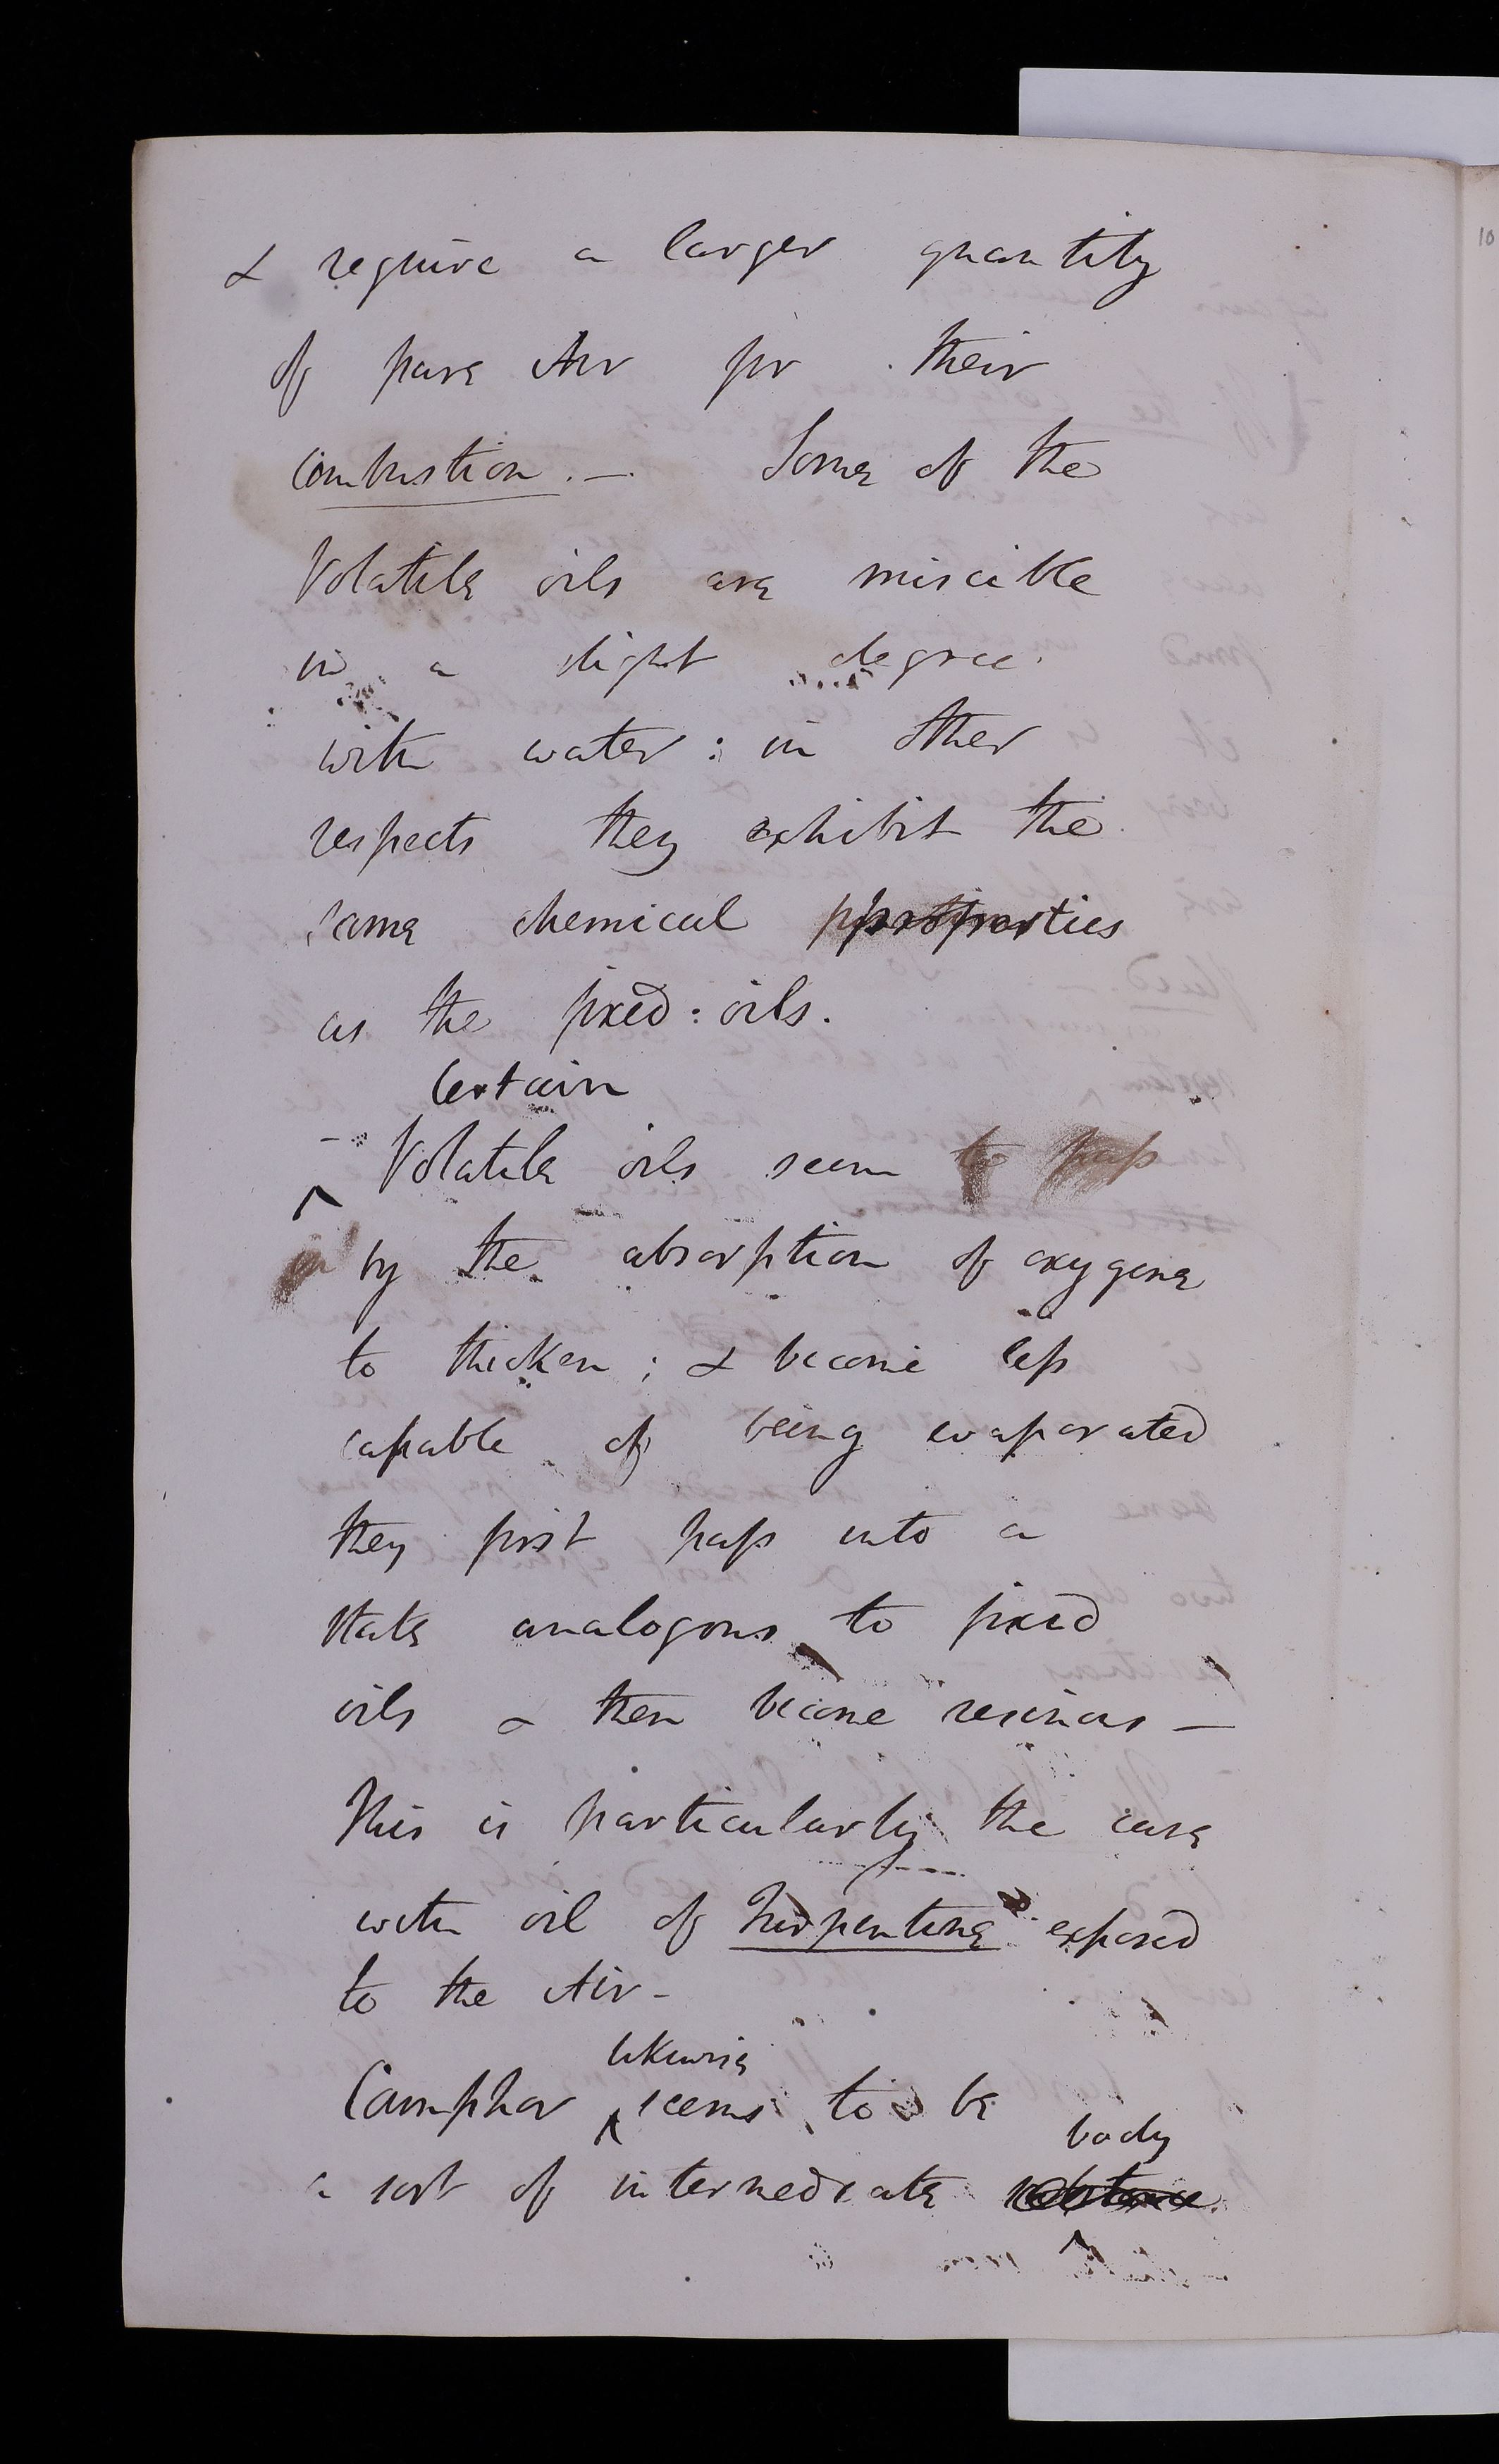 & require a larger quantity
of pure Air for their
combustion. –  Some of the
Volatile oils are miscible
in a slight degree.
with water: in other
respects they exhibit the
same chemical properties
as the fixed: oils.
Certain
– Volatile oils seem to pass
^
in by the absorption of oxygene
to thicken; & become less
capable of being evaporated
they first pass into a
state analogous to fixed
oils & then become resinous –
This is particularly the case
with oil of Turpentine exposed
to the Air –
likewise
Camphor ^ seems to be
body
a sort of intermediate substance.
^
10